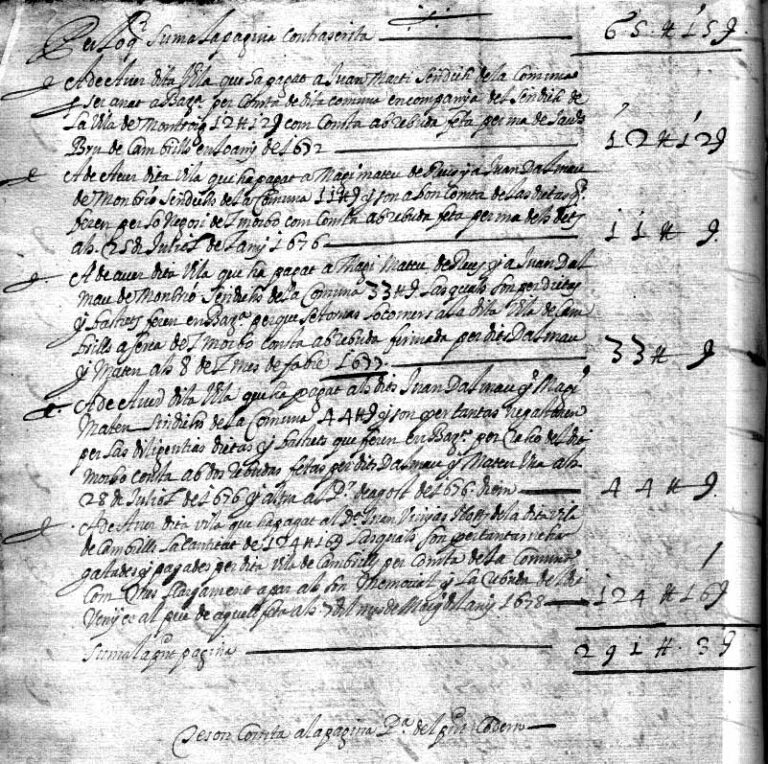 Per lo q. Suma la pagina contraescrita — 65 ɫ 15 9
A de Aver dita Vila que ha pagat a Juan Marti Sindich de la Comuna
per anar a Barª. per Conta de dita comuna en companya del Sindich de
La Vila de Montroig 12ɫ12 9 com Consta ab rebuda feta per ma de
Bru de Cambrills en lo any de 1672 — 12 ɫ 12 9
A de Aver dita vila que ha pagat a Magi mateu de Reus y a Juan Dalmau
de Monbrio Sindichs de la Comuna 11ɫ 9 y son a bon Conta de las dietas q.
feren per lo Negoci del morbo com Consta ab rebuda feta per ma dels dits
als 25 de Juliol de l any 1676 — 11 ɫ 9
A de aver dita Vila que ha pagat a Magi Mateu de Reus y a Juan Dal
mau de Monbrió Sindichs de la Comuna 33ɫ 9 Las quals son per dietas
y bastrets feren en Barª. perque se tornas lo comers a la dita Vila de Cam
brills a serca del morbo consta ab rebuda firmada per dits Dalmau
y Mateu als 8 de mes de 1677 — 33 ɫ 9
A de Aver dita Vila que ha pagat als dits Juan Dalmau y Magi
Mateu Sindichs de la Comuna 44ɫ 9 y son per tantas ne gastaren
per las diligentias dietas y bastrets que feren en Barª. per Raho del dit
morbo consta ab dos rebudas fetas per dits Dalmau y Mateu Una als
28 de Juliol de 1676 y altra al Pr. de agost de 1676 — 44 ɫ 9
A de Aver dita vila que ha pagat al Dr. Juan de la dita vila
de Cambrills La Cantitat de 124 ɫ 16 9 Las quals son per tantas ne ha
y pagades per dita vila de Cambrills per Conta de la Comuna
Com Mes Llargament apar ab son Memorial y La rebuda de dit
al peu de aquell feta als 7 del mes de Maig del any 1678 — 124 ɫ 16 9
Suma la pnt pagina — 291 ɫ 3 9
Se son Contra a la pagina Pª. del pnt Codern —